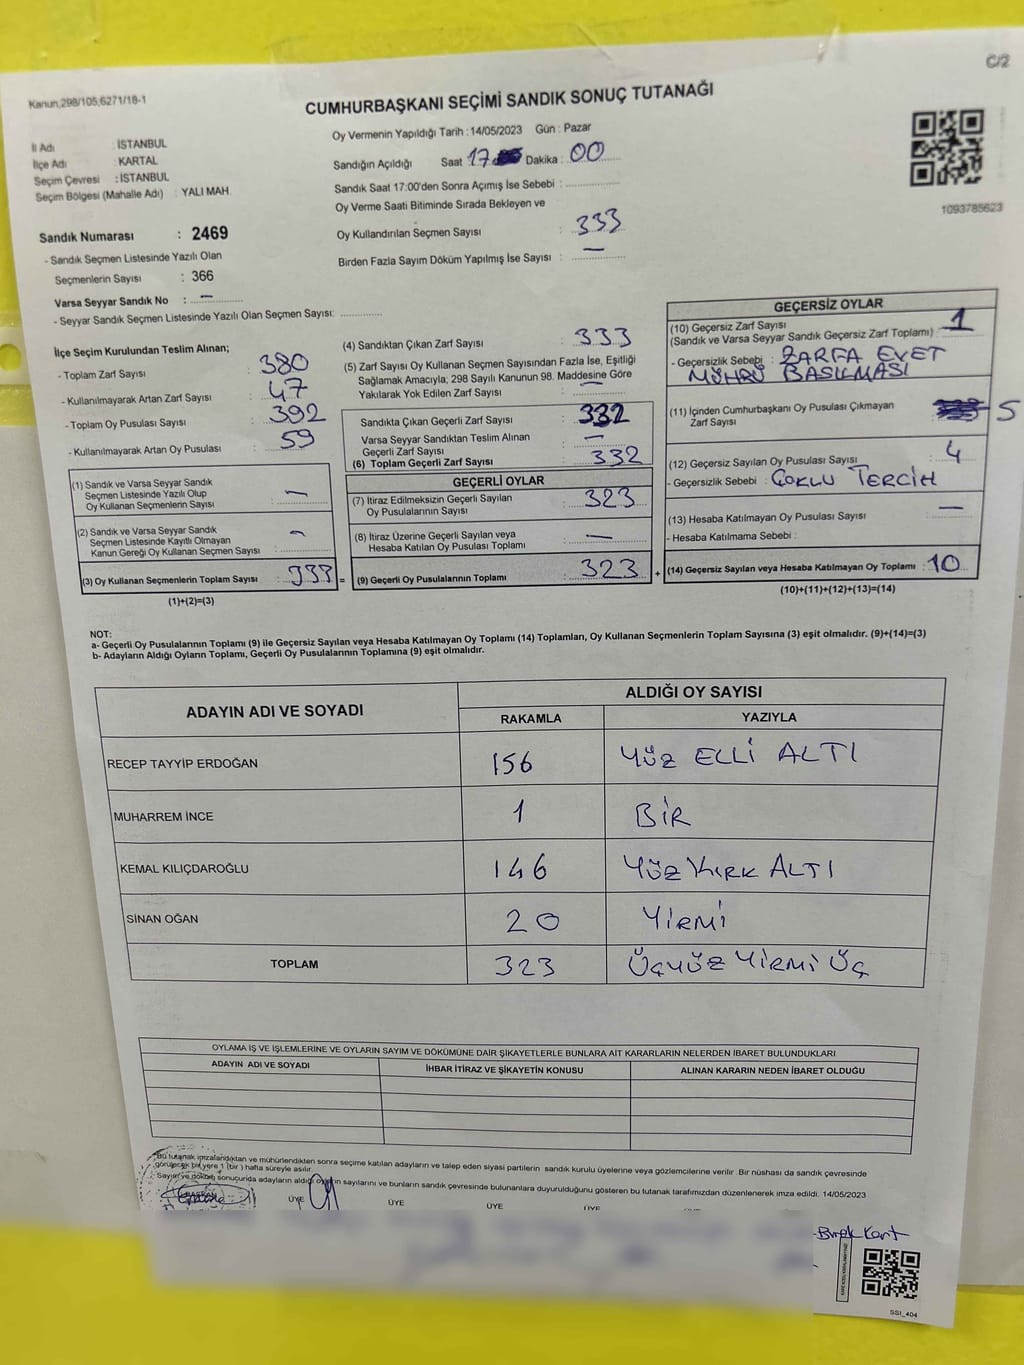 C/2
Kanun,298/105,6271/18-1
CUMHURBAŞKANI SEÇİMİ SANDIK SONUÇ TUTANAĞI
İl Adı : İSTANBUL
İlçe Adı : KARTAL
Seçim Çevresi : İSTANBUL
Seçim Bölgesi (Mahalle Adı) : YALI MAH.
Oy Vermenin Yapıldığı Tarih : 14/05/2023 Gün : Pazar
Sandığın Açıldığı Saat 17 Dakika : 00
Sandık Saat 17:00'den Sonra Açımış İse Sebebi :
Oy Verme Saati Bitiminde Sırada Bekleyen ve
Oy Kullandırılan Seçmen Sayısı : 333
Birden Fazla Sayım Döküm Yapılmış İse Sayısı : —
1093785623
Sandık Numarası : 2469
- Sandık Seçmen Listesinde Yazılı Olan
Seçmenlerin Sayısı : 366
Varsa Seyyar Sandık No : —
- Seyyar Sandık Seçmen Listesinde Yazılı Olan Seçmen Sayısı:
İlçe Seçim Kurulundan Teslim Alınan;
- Toplam Zarf Sayısı : 380
- Kullanılmayarak Artan Zarf Sayısı : 47
- Toplam Oy Pusulası Sayısı : 392
- Kullanılmayarak Artan Oy Pusulası : 59
(1) Sandık ve Varsa Seyyar Sandık
Seçmen Listesinde Yazılı Olup
Oy Kullanan Seçmenlerin Sayısı : —
(2) Sandık ve Varsa Seyyar Sandık
Seçmen Listesinde Kayıtlı Olmayan
Kanun Gereği Oy Kullanan Seçmen Sayısı : —
(3) Oy Kullanan Seçmenlerin Toplam Sayısı : 333 =
(1)+(2)=(3)
(4) Sandıktan Çıkan Zarf Sayısı : 333
(5) Zarf Sayısı Oy Kullanan Seçmen Sayısından Fazla İse, Eşitliği
Sağlamak Amacıyla; 298 Sayılı Kanunun 98. Maddesine Göre
Yakılarak Yok Edilen Zarf Sayısı : —
Sandıkta Çıkan Geçerli Zarf Sayısı : 332
Varsa Seyyar Sandıktan Teslim Alınan
Geçerli Zarf Sayısı : —
(6) Toplam Geçerli Zarf Sayısı : 332
GEÇERLİ OYLAR
(7) İtiraz Edilmeksizin Geçerli Sayılan
Oy Pusulalarının Sayısı : 323
(8) İtiraz Üzerine Geçerli Sayılan veya
Hesaba Katılan Oy Pusulası Toplamı : —
(9) Geçerli Oy Pusulalarının Toplamı : 323 +
GEÇERSİZ OYLAR
(10) Geçersiz Zarf Sayısı
(Sandık ve Varsa Seyyar Sandık Geçersiz Zarf Toplamı) : 1
- Geçersizlik Sebebi : ZARFA EVET
MÜHRÜ BASILMASI
(11) İçinden Cumhurbaşkanı Oy Pusulası Çıkmayan
Zarf Sayısı : 5
(12) Geçersiz Sayılan Oy Pusulası Sayısı : 4
- Geçersizlik Sebebi : ÇOKLU TERCİH
(13) Hesaba Katılmayan Oy Pusulası Sayısı : —
- Hesaba Katılmama Sebebi :
(14) Geçersiz Sayılan veya Hesaba Katılmayan Oy Toplamı : 10
(10)+(11)+(12)+(13)=(14)
NOT:
a- Geçerli Oy Pusulalarının Toplamı (9) ile Geçersiz Sayılan veya Hesaba Katılmayan Oy Toplamı (14) Toplamları, Oy Kullanan Seçmenlerin Toplam Sayısına (3) eşit olmalıdır. (9)+(14)=(3)
b- Adayların Aldığı Oyların Toplamı, Geçerli Oy Pusulalarının Toplamına (9) eşit olmalıdır.
ADAYIN ADI VE SOYADI
ALDIĞI OY SAYISI
RAKAMLA YAZIYLA
RECEP TAYYİP ERDOĞAN 156 YÜZ ELLİ ALTI
MUHARREM İNCE 1 BİR
KEMAL KILIÇDAROĞLU 146 YÜZ KIRK ALTI
SİNAN OĞAN 20 YİRMİ
TOPLAM 323 ÜÇYÜZ YİRMİ ÜÇ
OYLAMA İŞ VE İŞLEMLERİNE VE OYLARIN SAYIM VE DÖKÜMÜNE DAİR ŞİKAYETLERLE BUNLARA AİT KARARLARIN NELERDEN İBARET BULUNDUKLARI
ADAYIN ADI VE SOYADI İHBAR İTİRAZ VE ŞİKAYETİN KONUSU ALINAN KARARIN NEDEN İBARET OLDUĞU
Bu tutanak imzalandıktan ve mühürlendikten sonra seçime katılan adayların ve talep eden siyasi partilerin sandık kurulu üyelerine veya gözlemcilerine verilir. Bir nüshası da sandık çevresinde
görülecek bir yere 1 (bir) hafta süreyle asılır.
Sayım ve döküm sonucunda adayların aldığı oyların sayılarını ve bunların sandık çevresinde bulunanlara duyurulduğunu gösteren bu tutanak tarafımızdan düzenlenerek imza edildi. 14/05/2023
BAŞKAN ÜYE ÜYE ÜYE ÜYE
SSI_404